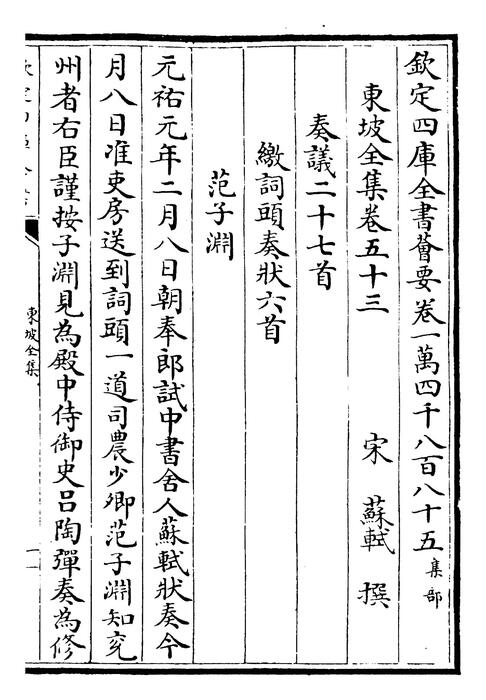 欽定四庫全書薈要卷一萬四千八百八十五集部
東坡全集卷五十三
宋 蘇軾 撰
奏議二十七首
繳詞頭奏狀六首
范子淵
元祐元年二月八日朝奉郎試中書舍人蘇軾狀奏今
月八日准吏房送到詞頭一道司農少卿范子淵知兖
州者右臣謹按子淵見為殿中侍御史吕陶彈奏為修
東坡全集